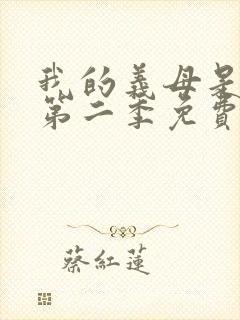 我的義母是
第二季免費
蔡紅蓮